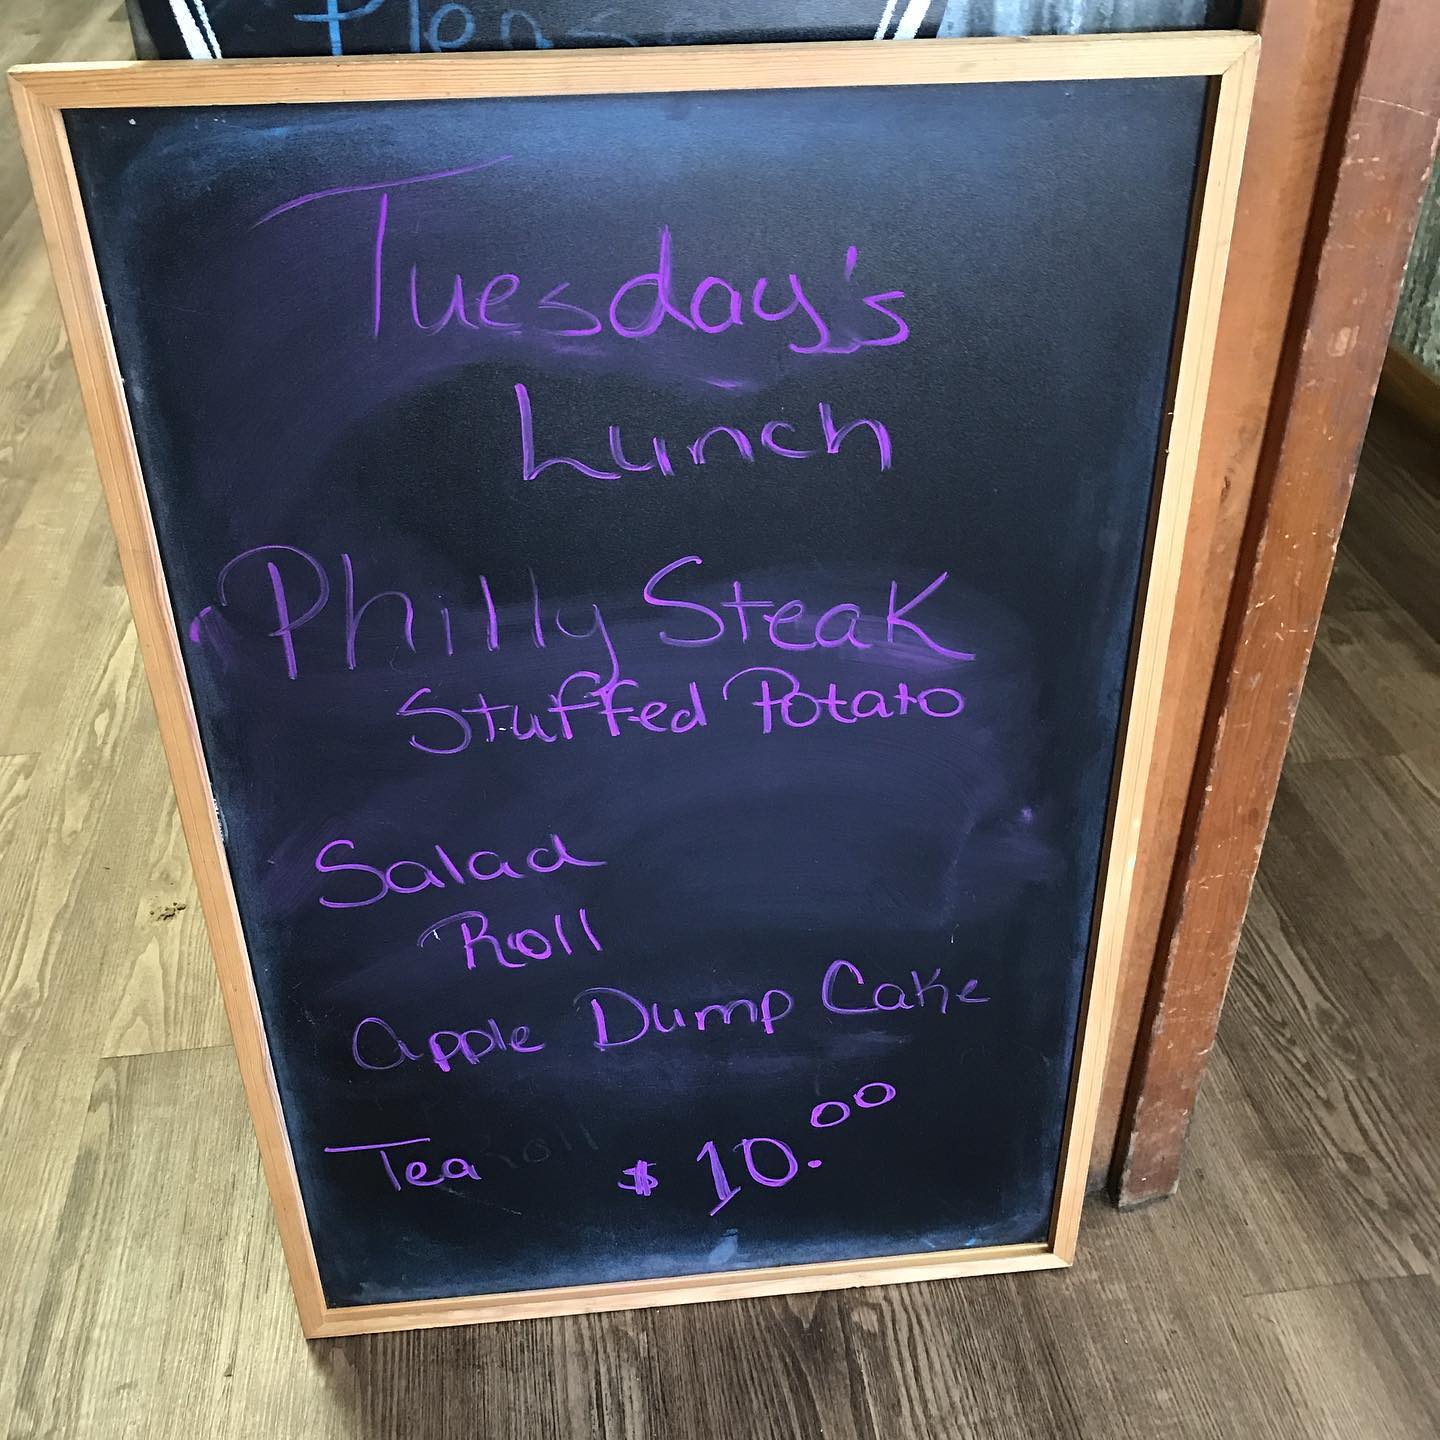 Tuesday's
Lunch
Philly Steak
Stuffed Potato
Salad
Roll
Apple Dump Cake
Tea $10.00